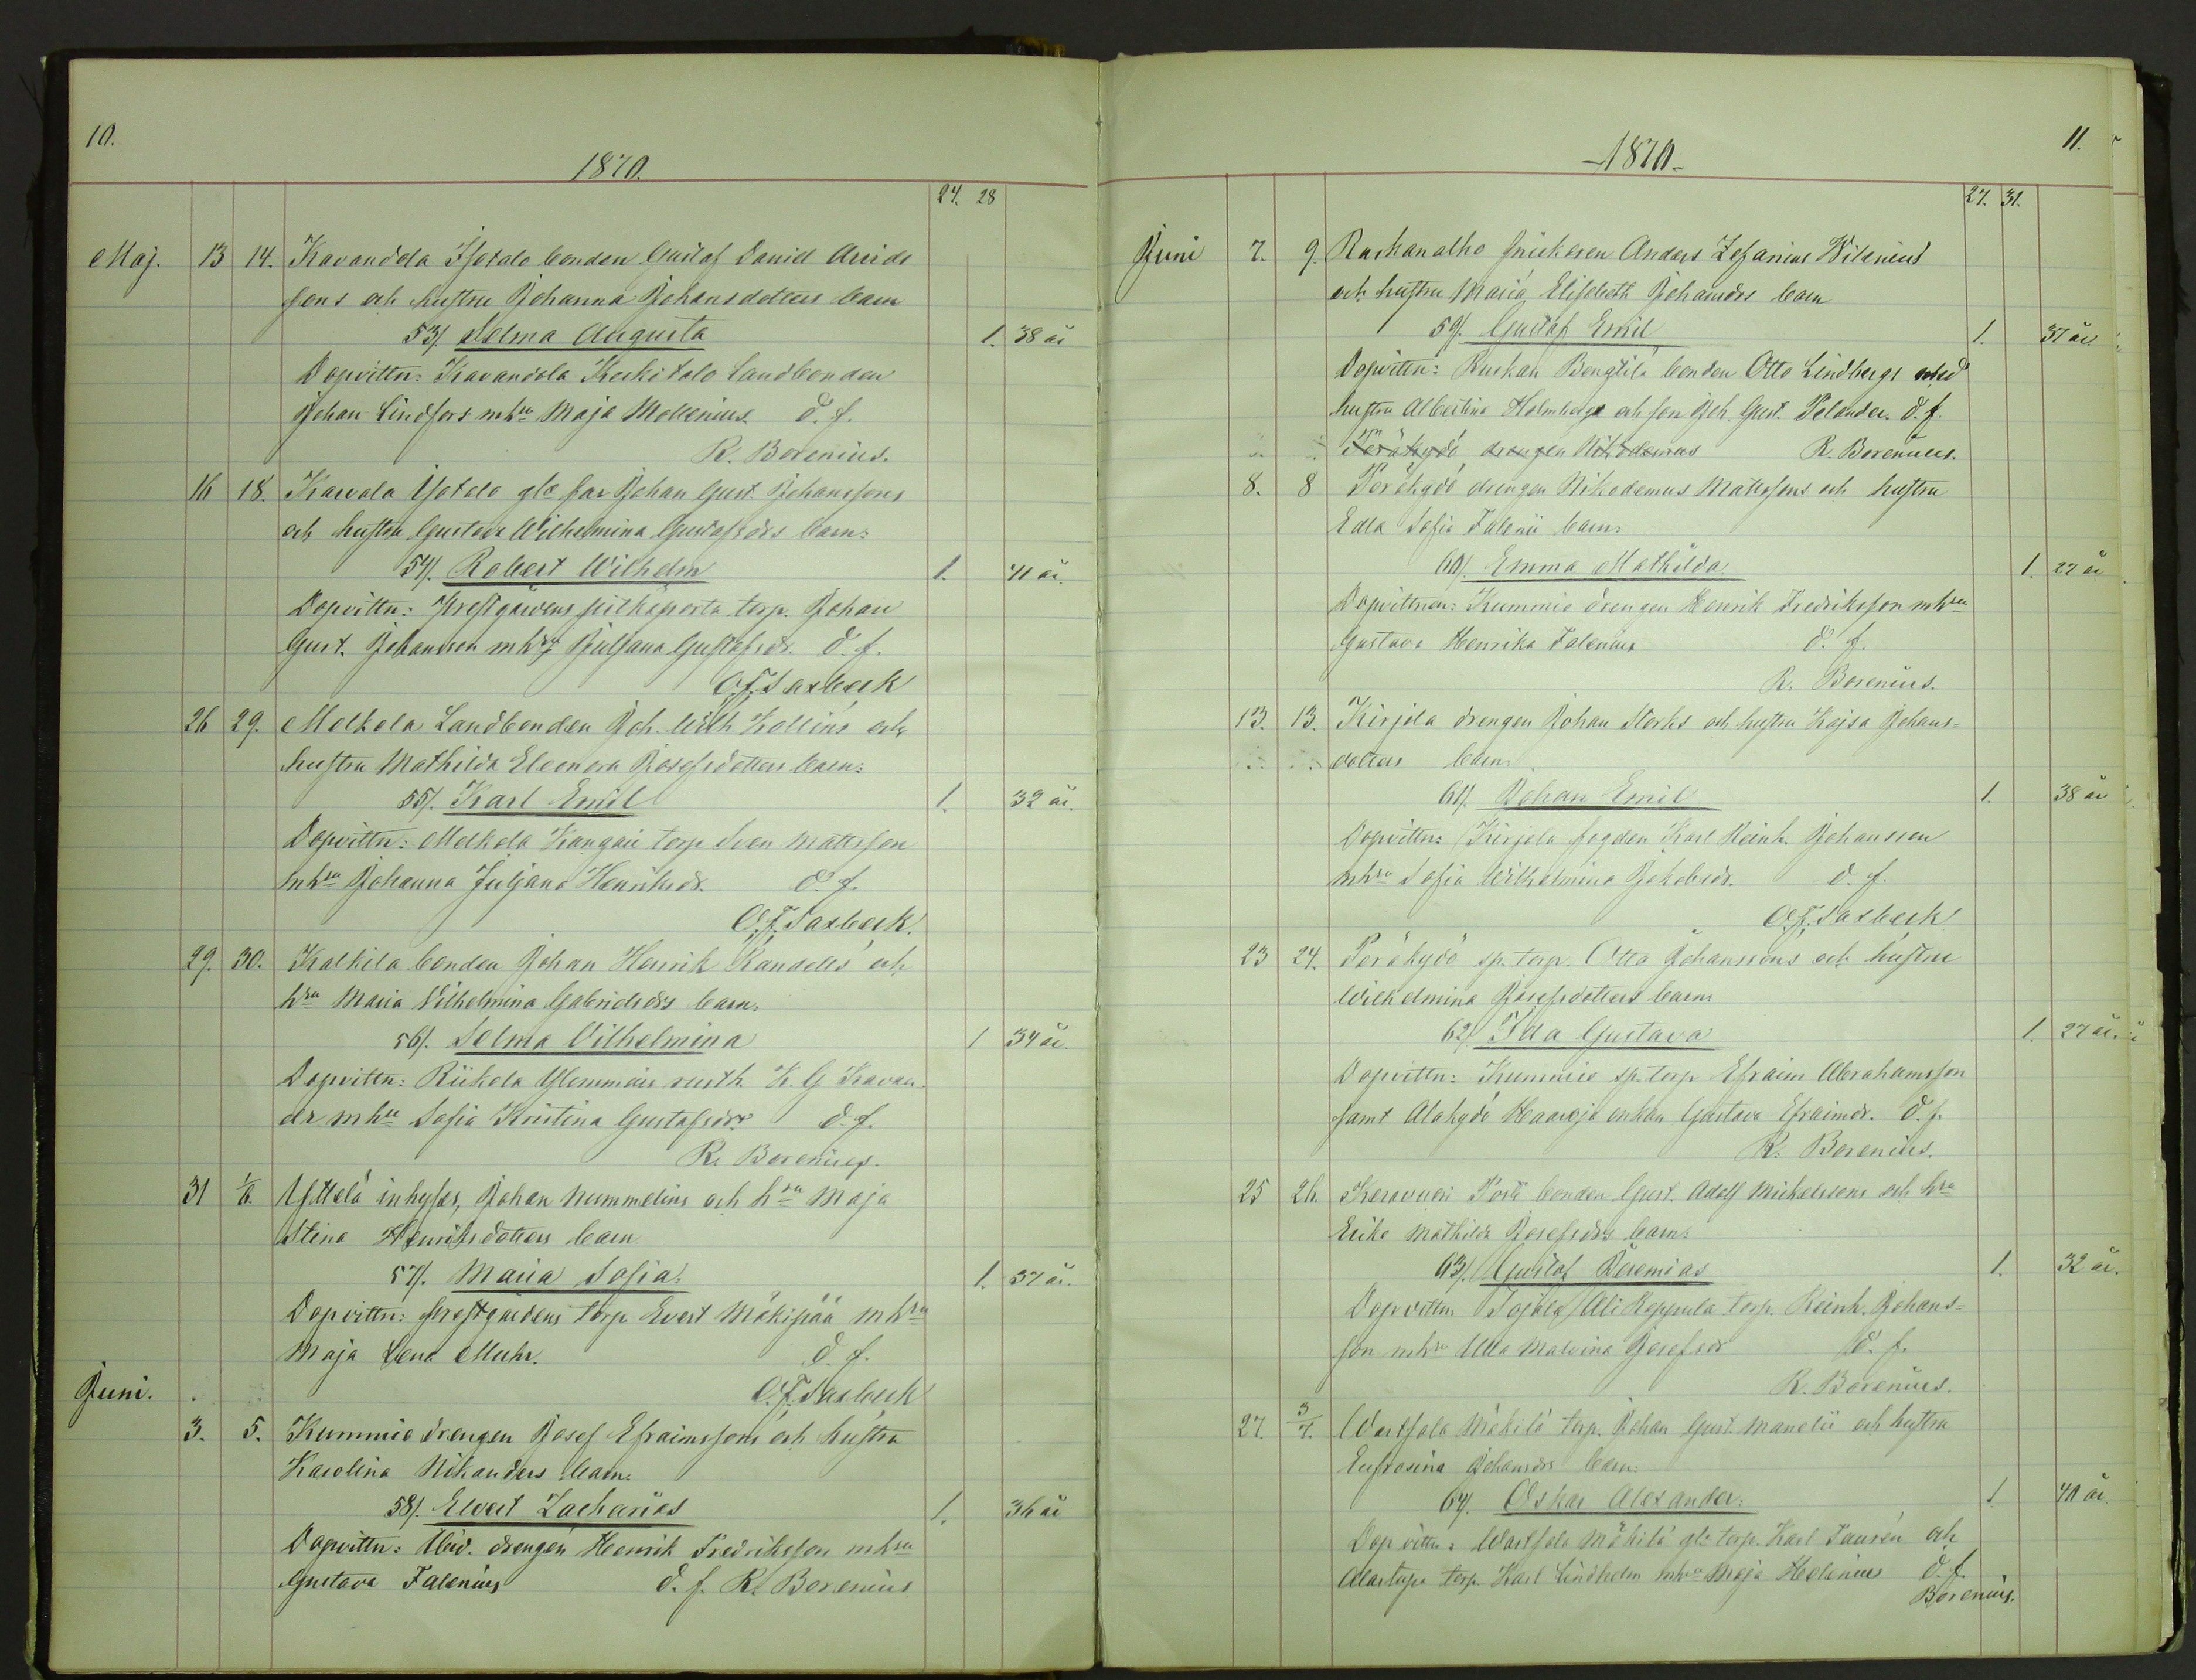 10.
1870.
24. 28
Maj. 13 14. Kavandola Isotalo bonden Gustaf David Arvids
sons och hustru Johanna Johansdotters barn
53/. Selma Augusta 1. 38 år
Dopvittn: Kavandola Keskitalo landbonden
Johan Lindfors mhru Maja Mollenius. d. f.
R. Borenius.
16 18. Kavola Ysotalo gla far Johan Gust. Johanssons
och hustru Gustava Wilhelmina Gustafsdrs barn:
54/. Robert Wilhelm 1. 41 år.
Dopvittn: Prestgårdens torp. Johan
Gust. Johansson mhru Juljana Gustafsdr. d. f.
O.F. Saxbeck
26 29. Melkola Landbonden Joh. Wilh Kollins och
hustru Mathilda Eleonora Josefsdotters barn:
55/. Karl Emil 1. 32 år.
Dopvittn: Melkola Kangais torp Sven Mattsson
mhru Johanna Juljana Henriksdr. d. f.
O.F. Saxbeck.
29. 30. Kalkila bonden Johan Henrik Kandells och
hru Maria Vilhelmina Gabrielsdrs barn:
56/. Selma Vilhelmina 1 34 år.
Dopvittn: Riikola Ylemmäis rusth. K. G Kavan-
der mhru Sofia Kristina Gustafsdr. d. f.
R. Borenius.
31 1/6. Yltelä inhyses, Johan Nummelins och hru Maja
Stina Henriksdotters barn.
57/. Maria Sofia. 1. 37 år.
Dopvittn: Prestgårdens torp. Evert Mäkipää mhru
Maja Lena Muhr. d. f.
O.F. Saxbeck
Juni.
3. 5. Kummio drengen Josef Efraimssons och hustru
Karolina Nikanders barn:
58/. Evert Zacharias 1. 36 år
Dopvittn: Ibid. drengen Henrik Fredriksson mhru
Gustava Falenius d. f. R. Borenius
11.
-1870-
27. 31.
Juni 7. 9. Ruskanalho snickaren Anders Zefanias Wilenius
och hustru Maria Elisabeth Johansdrs barn
59/. Gustaf Emil 1. 37 år.
Dopvittn: Ruskah Bengtilä bonden Otto Lindbergs med
hustru Albertina Holmbergs och son Joh. Gust. Pelander. d. f.
Peräkylö drengen Nikodemus R. Borenius.
8. 8 Peräkylö drengen Nikodemus Matssons och hustru
Edla Sofia Falenii barn:
60/. Emma Mathilda 1. 27 år
Dopvittnen: Kummio drengen Henrik Fredriksson mhru
Gustava Henrika Falenius d. f.
R. Borenius.
13. 13. Kirjola drengen Johan Storks och hustru Kajsa Johans=
dotters barn:
61/. Johan Emil 1. 38 år
Dopvittn: Kirjola fogden Karl Reinh. Johansson
mhru Sofia Wilhelmina Jakobsdr. d. f.
O.F. Saxbeck
23 24. Peräkylö sp. torp. Otto Johanssons och hustru
Wilhelmina Josefsdotters barn:
62/. Ida Gustava 1. 27 år.
Dopvittn: Kummio sp. torp Efraim Abrahamsson
samt Alakylö Haaroja enkan Gustava Efraimdr. d. f.
R. Borenius.
25 26. Keravuori bonden Gust. Adolf Mickelssons och hru
Erika Mathilda Josefsdrs barn:
63/. Gustaf Jeremias 1. 32 år.
Dopvittn: Tojola Ali Keppula torp. Reinh. Johans=
son mhru Ulla Malvina Josefsdr d. f.
R. Borenius.
27. 3/7. Wartsala Mäkilä torp. Johan Gust. Manelii och hustru
Eufrosina Johansdrs barn:
64/. Oskar Alexander: 1. 40 år.
Dopvittn: Wartsala Mäkilä gla torp. Karl Taurén och
torp. Karl Lindholm mhru Maja Helenius d. f.
Borenius.